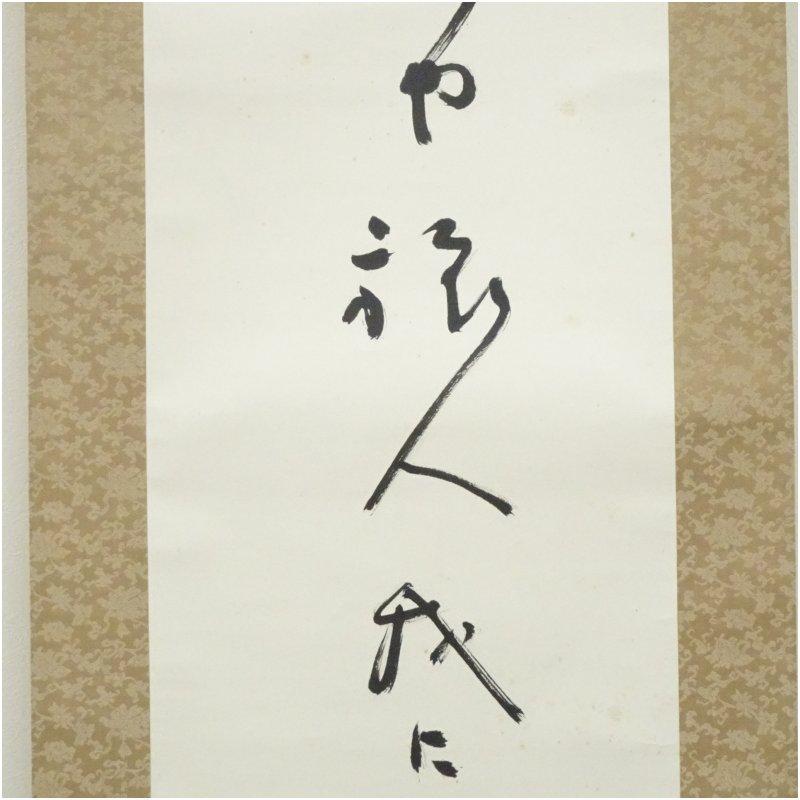 や旅人我に